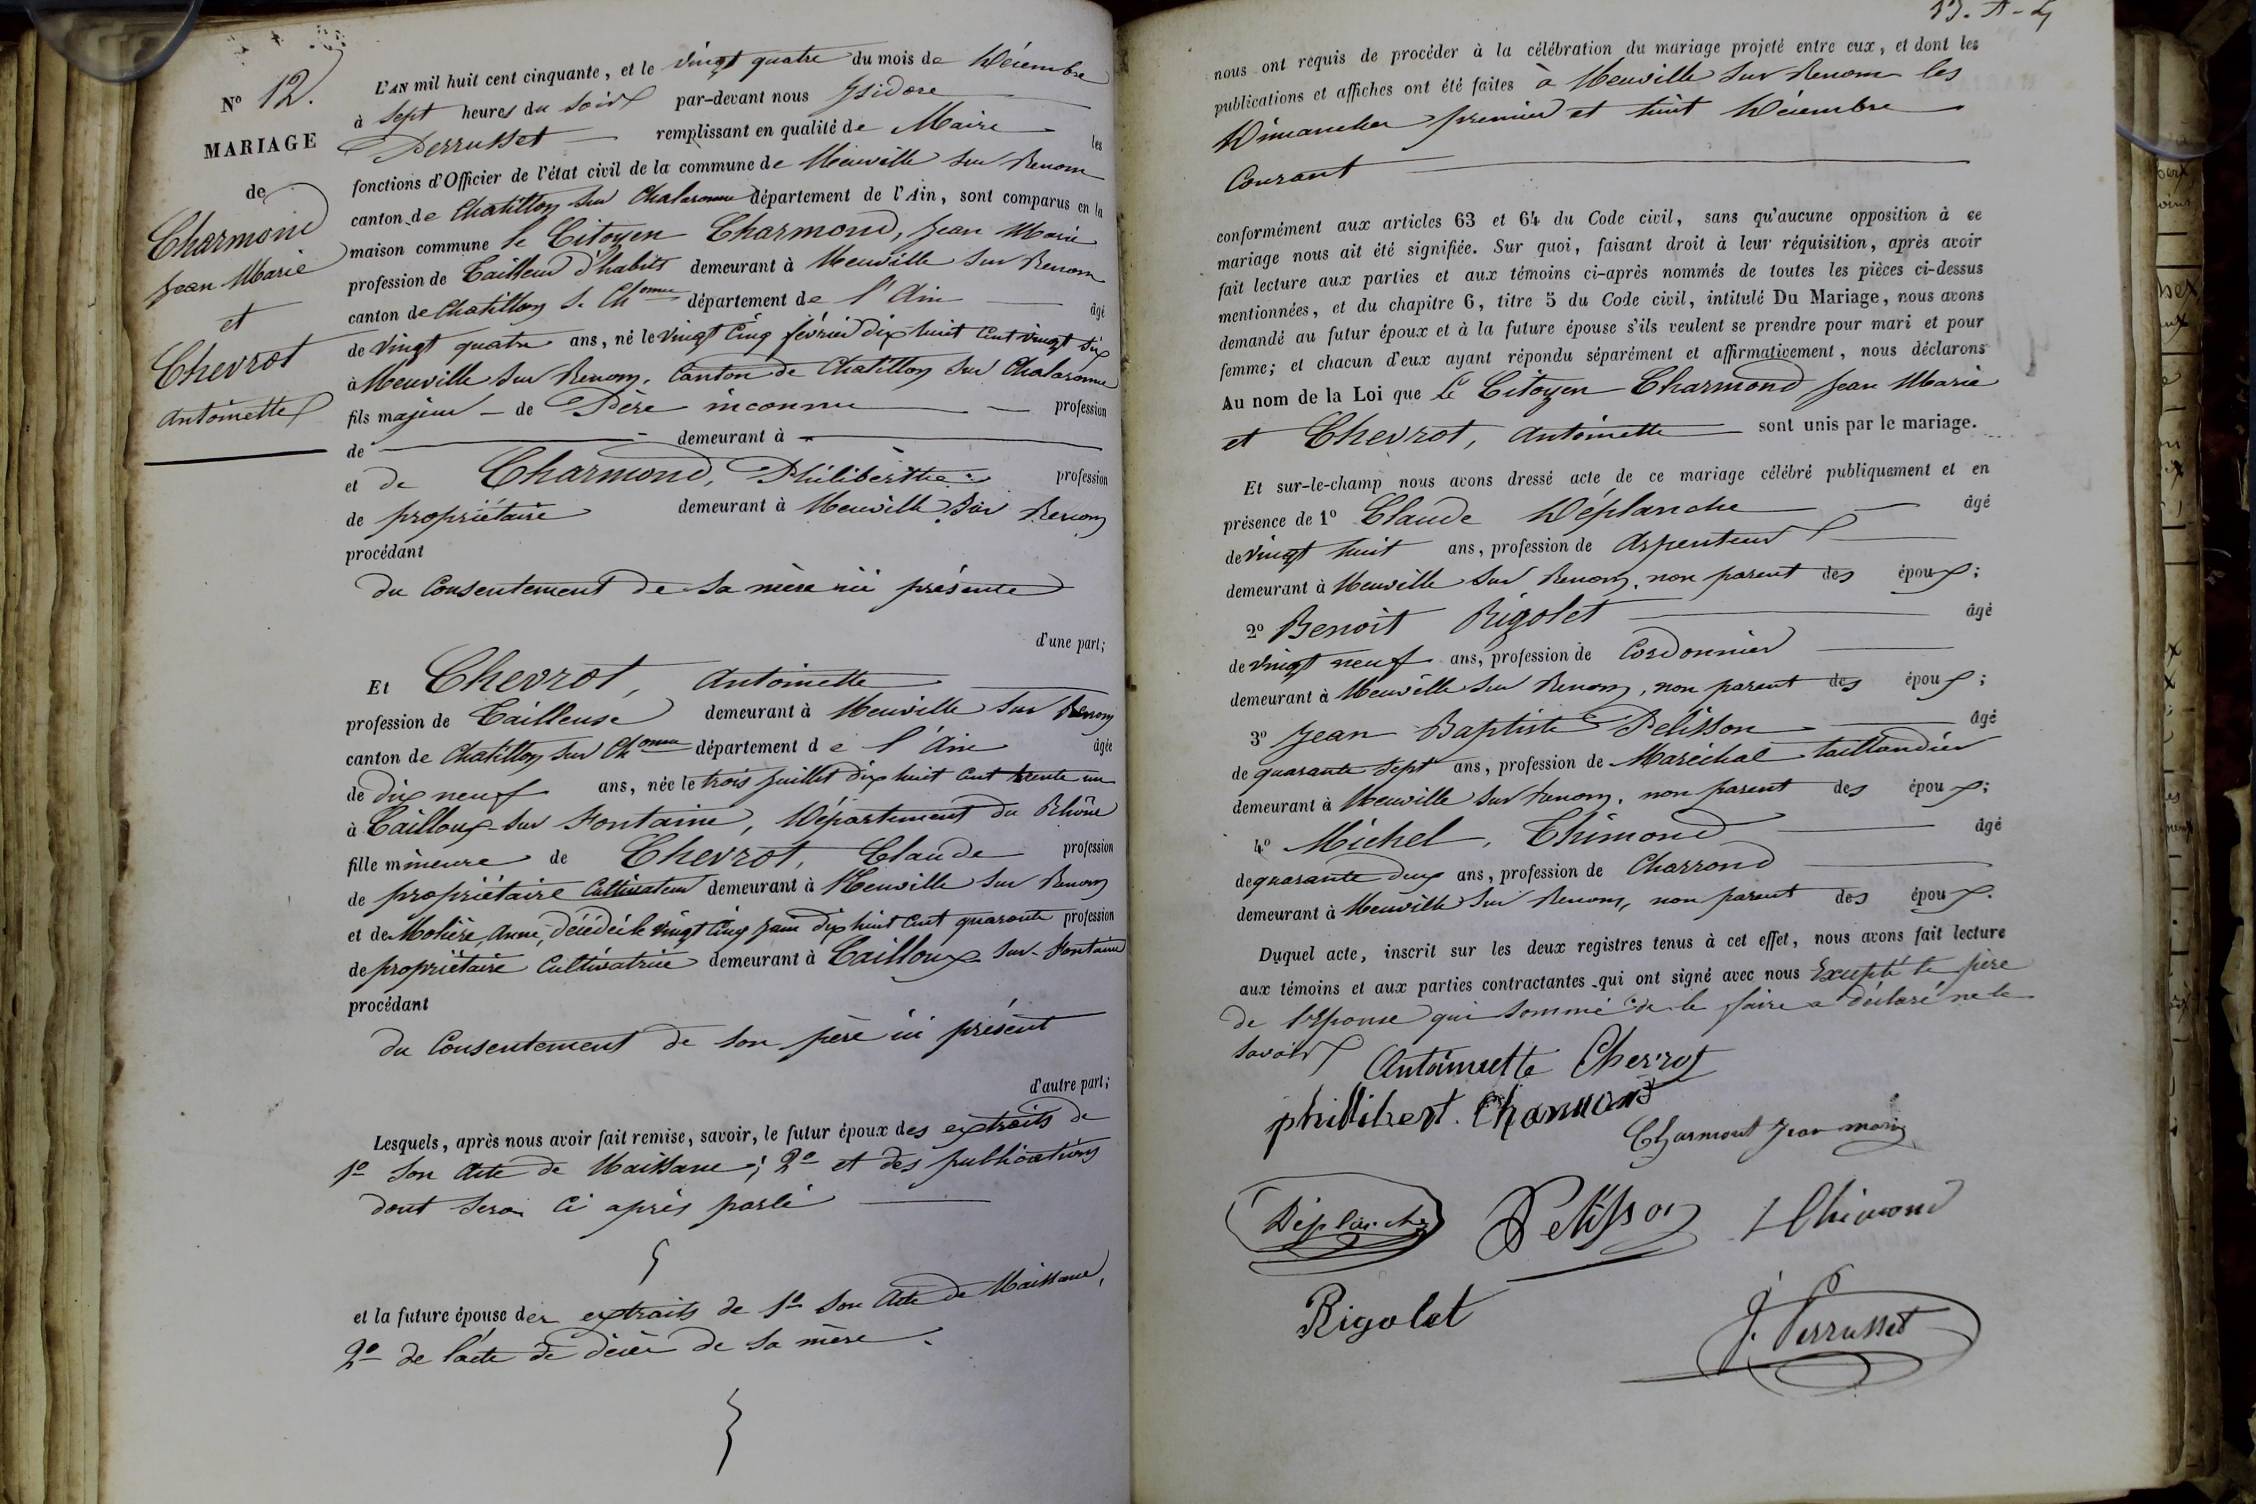 N° 12.
MARIAGE
de
Charmond
Jean Marie
et
Chevrot
Antoinette
L'AN mil huit cent cinquante, et le vingt quatre du mois de Décembre
à sept heures du soir par-devant nous Ysidore
Perrusset remplissant en qualité de Maire les
fonctions d'Officier de l'état civil de la commune de Neuville sur Renom
canton de Chatillon sur Chalaronne département de l'Ain, sont comparus en la
maison commune le Citoyen Charmond, Jean Marie
profession de Tailleur d'habits demeurant à Neuville sur Renom
canton de Chatillon s. Ch onne département de l'Ain âgé
de vingt quatre ans, né le vingt cinq février dix huit cent vingt six
à Neuville sur Renom, Canton de Chatillon sur Chalaronne
fils majeur de Père inconnu profession
de demeurant à
et de Charmond, Philiberthe profession
de propriétaire demeurant à Neuville sur Renom
procédant
du Consentement de sa mère ici présente
d'une part;
Et Chevrot, Antoinette
profession de Tailleuse demeurant à Neuville sur Renom
canton de Chatillon sur Ch onne département de l'Ain âgée
de dix neuf ans, née le trois juillet dix huit cent trente un
à Cailloux-sur Fontaine, Département du Rhône
fille mineure de Chevrot, Claude profession
de propriétaire Cultivateur demeurant à Neuville sur Renom
et de Molière, Anne, décédée le vingt cinq juin dix huit cent quarante profession
de propriétaire Cultivatrice demeurant à Cailloux sur-Fontaine
procédant
du Consentement de son père ici présent
d'autre part;
Lesquels, après nous avoir fait remise, savoir, le futur époux des extraits de
1° son Acte de Naissance; 2° et des publications
dont sera ci après parlé
et la future épouse des extraits de 1° son Acte de Naissance,
2° de l'acte de décès de sa mère.
nous ont requis de procéder à la célébration du mariage projeté entre eux, et dont les
publications et affiches ont été faites à Neuville sur Renom les
Dimanches premier et huit Décembre
Courant
conformément aux articles 63 et 64 du Code civil, sans qu'aucune opposition à ce
mariage nous ait été signifiée. Sur quoi, faisant droit à leur réquisition, après avoir
fait lecture aux parties et aux témoins ci-après nommés de toutes les pièces ci-dessus
mentionnées, et du chapitre 6, titre 5 du Code civil, intitulé Du Mariage, nous avons
demandé au futur époux et à la future épouse s'ils veulent se prendre pour mari et pour
femme; et chacun d'eux ayant répondu séparément et affirmativement, nous déclarons
Au nom de la Loi que Le Citoyen Charmond Jean Marie
et Chevrot, Antoinette sont unis par le mariage.
Et sur-le-champ nous avons dressé acte de ce mariage célébré publiquement et en
présence de 1° Claude Déplanche âgé
de vingt huit ans, profession de Arpenteur
demeurant à Neuville sur Renom, non parent des époux;
2° Benoit Rigolet âgé
de vingt neuf ans, profession de Cordonnier
demeurant à Neuville sur Renom, non parent des époux;
3° Jean Baptiste Pelisson âgé
de quarante sept ans, profession de Maréchal taillandier
demeurant à Neuville sur Renom, non parent des époux;
4° Michel, Thimond âgé
de quarante deux ans, profession de Charrond
demeurant à Neuville sur Renom, non parent des époux.
Duquel acte, inscrit sur les deux registres tenus à cet effet, nous avons fait lecture
aux témoins et aux parties contractantes qui ont signé avec nous Excepté le père
de l'Epouse qui sommé de le faire a déclaré ne le
savoir
Antoinette Chevrot
phillibert. Charmond
Charmont Jean marie
Déplanche Pelisson Thimond
Rigolet
J. Perrusset